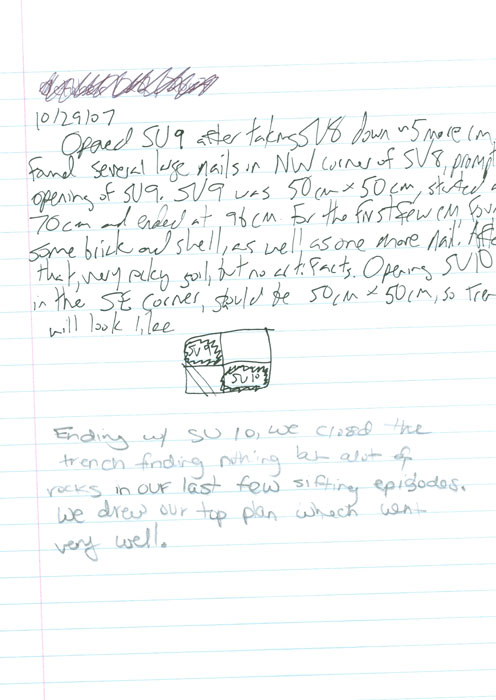 10/29/07
Opened SU9 after taking SU8 down ~5 more cm
Found several large nails in NW corner of SU8, prompt
opening of SU9. SU9 was 50cm x 50cm, started a
70cm and ended at 96cm. For the first few cm Foun
some brick and shell, as well as one more nail. Afte
that, very rocky soil, but no artifacts. Opening SU10
in the SE corner, should be 50cm x 50cm, so Tren
will look like
SU9
SU10
Ending w/ SU 10, we closed the
trench finding nothing but alot of
rocks in our last few sifting episodes.
We drew our top plan which went
very well.